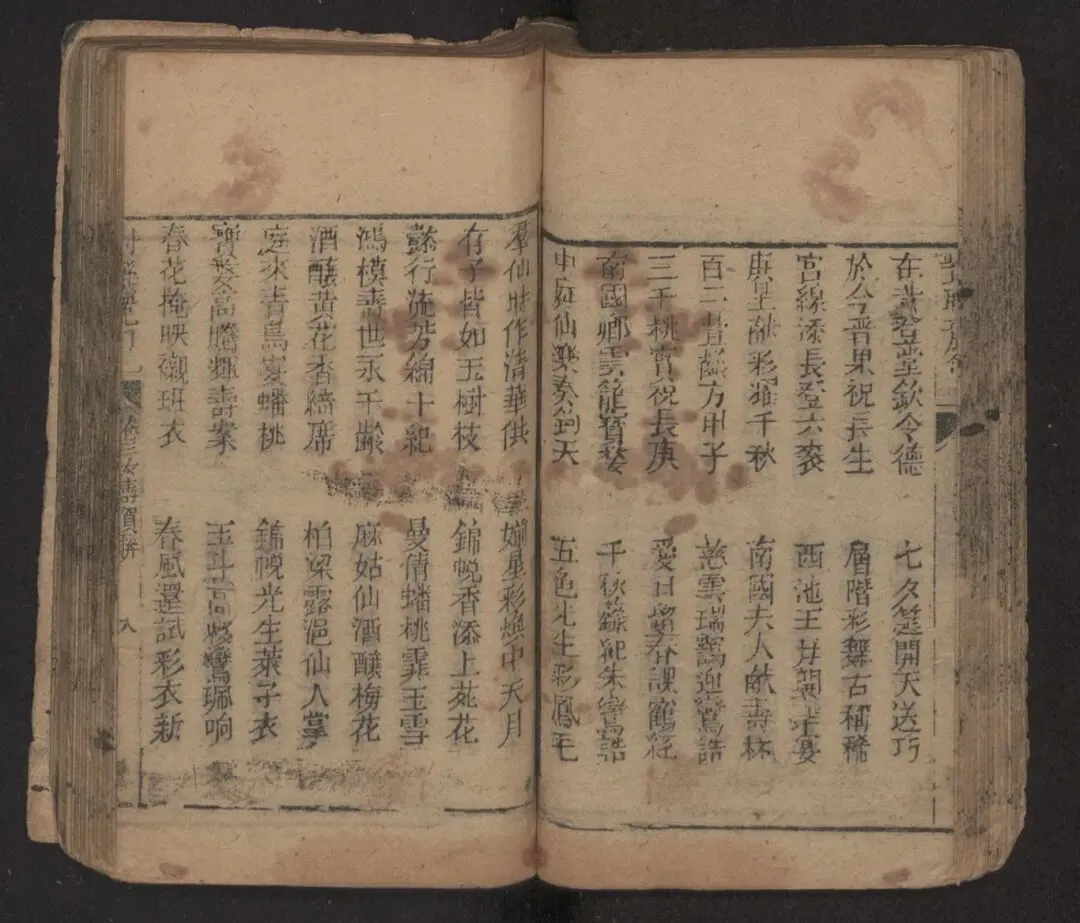 在昔登堂欽令德 七夕筵開天送巧
於今晋果祝長生 層階彩舞古稱稀
宮線添長登六袠 西池王母開宴
庚星融彩耀千秋 南國夫人献壽杯
百二疊餘方甲子 慈雲瑞靄迎鸞誥
三千桃實祝長庚 愛日春課鶴經
南國鄉雲籠寶婺 千秋朱鸞誥
中庭仙樂奏鈞天 五色光生彩鳳毛
羣仙時作清華供 星彩煥中天月
有子皆如玉樹枝 錦帨香添上苑花
懿行流芳綿十紀 曼倩蟠桃霏玉雪
鴻模壽世永千齡 麻姑仙酒釀梅花
酒釀黃花香綺席 柏梁露浥仙人掌
庭來青鳥宴蟠桃 錦帨光生萊子衣
寶婺高騰輝壽案 玉斗高鸞珮响
春花掩映襯班衣 春風還試彩衣新
卷三女壽賀聯 八